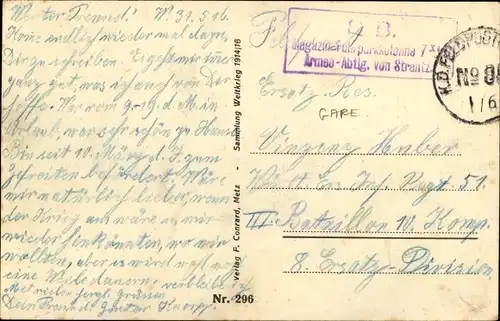 Werter Freund! W. 31.5.16.
Kome endlich wieder mal dazu,
Dir zu schreiben. Es geht mir
ganz gut, was ich auch von Dir
hoffe. War vom 9.-9. d. M. in
Urlaub, war sehr schön zu Hause
Bin seit 10. März d. J. zum
Gefreiten bef. Wäre
mir natürlich lieber, wenn
der Krieg am wäre u. wir
wieder hin könnten, wo wir
wollten, aber es wird noch
eine Weile dauern, verbleibe ich
Mit vielen herzl. Grüssen
Dein Freund:
Verlag F. Conrard, Metz - Sammlung Weltkrieg 1914/16
S. B.
Magazin-Fuhrparkkolonne 7
Armee-Abtlg. von Strantz.
K.D. FELDPOST
No
1/6
Ersatz Res.
GARE
Huber
Inf. Regt 51.
III. Bataillon 10. Komp.
8. Ersatz-Division
Nr. 296